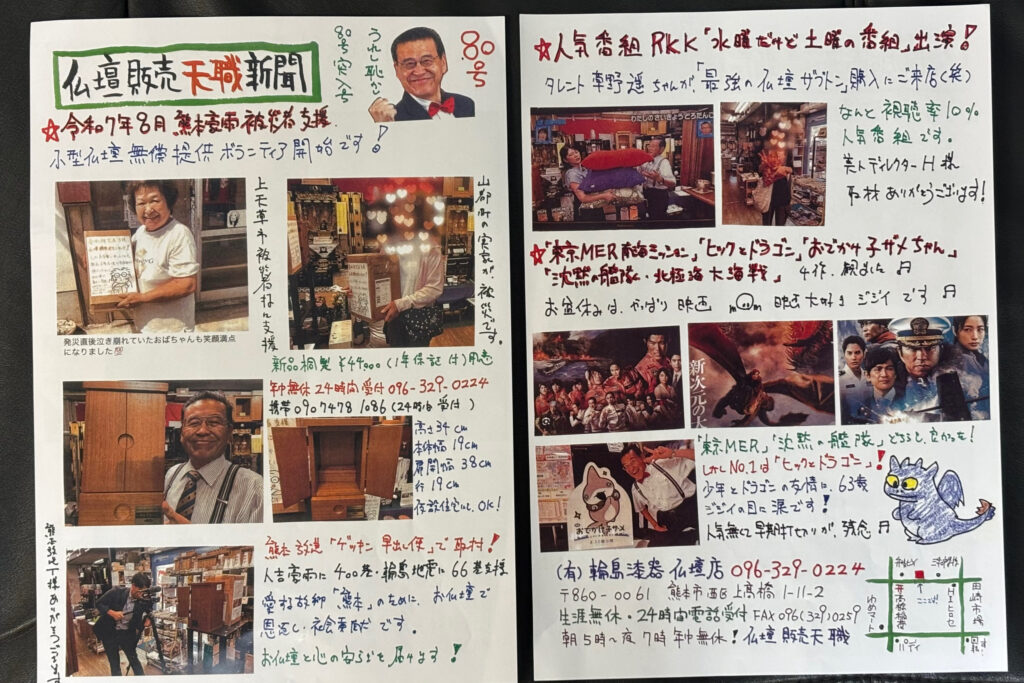 仏壇販売天職新聞
うれし恥かし
80号突入号
80号
☆令和7年8月 熊本豪雨被災者支援
小型仏壇無償提供ボランティア開始です!
上天草市被災者様に支援
山都町の実家が被災です。
発災直後泣き崩れていたおばちゃんも笑顔満点
になりました
新品桐製 ¥44000(1年保証付)用意
年中無休24時間受付096-329-0224
携帯 090 7478 1086(24時間受付)
高さ34cm
本体幅19cm
扉開幅38cm
行19cm
仮設住宅にも、OK!
熊本放送「ゲツキン早出し便」で取材!
人吉豪雨に400巻・輪島地震に66巻支援
愛する故郷「熊本」のために、お仏壇で
恩返し・社会奉献です。
お仏壇と心の安らぎを届けます!
☆人気番組RKK「水曜だけど土曜の番組」出演!
タレント草野遥ちゃんが「最強の仏壇ザブトン」購入にご来店(笑)
わたしのさいきょうとろだんご
なんと視聴率10%
人気番組です。
美人ディレクターH様
取材ありがとうございます!
☆「東京MER 南海ミッション」「ヒックとドラゴン」「おでかけ子ザメちゃん」
「沈黙の艦隊・北極海大海戦」4作、観ました
お盆休みは、やっぱり映画 m m 映画大好きジジイです
新次元の
おでかけ子ザメ
「東京MER」「沈黙の艦隊」どちらも良かった!
しかしNo.1は「ヒックとドラゴン」!
少年とドラゴンの友情に、63歳
ジジイの目に涙です!
人気無くて早期打ち切りが、残念
(有)輪島漆器仏壇店 096-329-0224
〒860-0061 熊本市西区上高橋1-11-2
生涯無休・24時間電話受付 FAX 096(329)0259
朝5時~夜7時年中無休!仏壇販売天職
高橋稲荷
ゆめマート
田崎市場